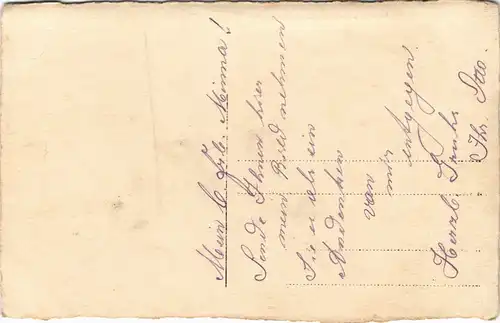 Mein l. Frl. Minna!
Sende Ihnen hier
mein Bild nehmen
Sie es als ein
Andenken
von
mir
entgegen.
Herzl. Gruß
Ihr Otto.